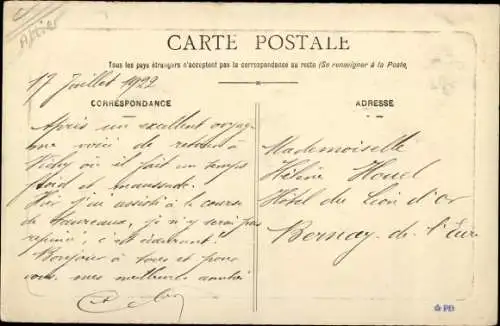 Allier
CARTE POSTALE
Tous les pays étrangers n'acceptent pas la correspondance au recto (Se renseigner à la Poste)
17 Juillet 1922
CORRESPONDANCE
Après un excellent voyage
me voici de retour à
Vichy où il fait un temps
froid et maussade.
Hier j'ai assisté à la course
de taureaux, je n'y serai pas
repincé, c'est écœurant!
Bonjour à tous et pour
vous mes meilleures amitiés
ADRESSE
Mademoiselle
Hélène Houel
Hôtel du Lion d'or
Bernay. de l'Eure
PD